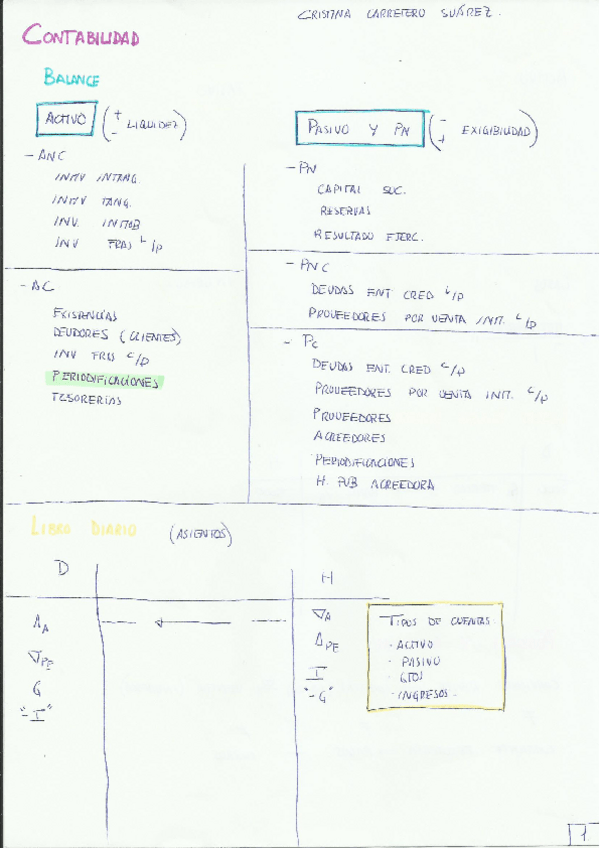 CRISTINA CARRETERO SUÁREZ.
CONTABILIDAD
BALANCE
ACTIVO (+ - LIQUIDEZ)
- ANC
INMV INTANG.
INMV TANG.
INV. INMOB
INV FRAS L/p
- AC
EXISTENCIAS
DEUDORES (CLIENTES)
INV FRAS C/p
PERIODIFICACIONES
TESORERÍAS
PASIVO Y PN (- + EXIGIBILIDAD)
- PN
CAPITAL SOC.
RESERVAS
RESULTADO EJERC.
- PNC
DEUDAS ENT CRED L/p
PROVEEDORES POR VENTA INM. L/p
- PC
DEUDAS ENT. CRED C/p
PROVEEDORES POR VENTA INM. C/p
PROVEEDORES
ACREEDORES
PERIODIFICACIONES
H. PUB ACREEDORA
LIBRO DIARIO (ASIENTOS)
D H
ΔA ∇A
∇PE ΔPE
G I
"-I" "-G"
TIPOS DE CUENTAS
· ACTIVO
· PASIVO
· GTOS
· INGRESOS.
1